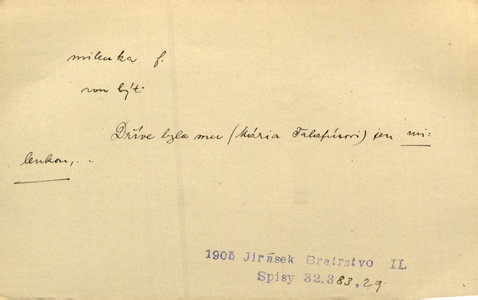 milenka f.
von být
Dříve byla mu (Mária Talafúsovi) jen mi-
lenkou, ..
1905 Jirásek Bratrstvo II.
Spisy 32.383,29